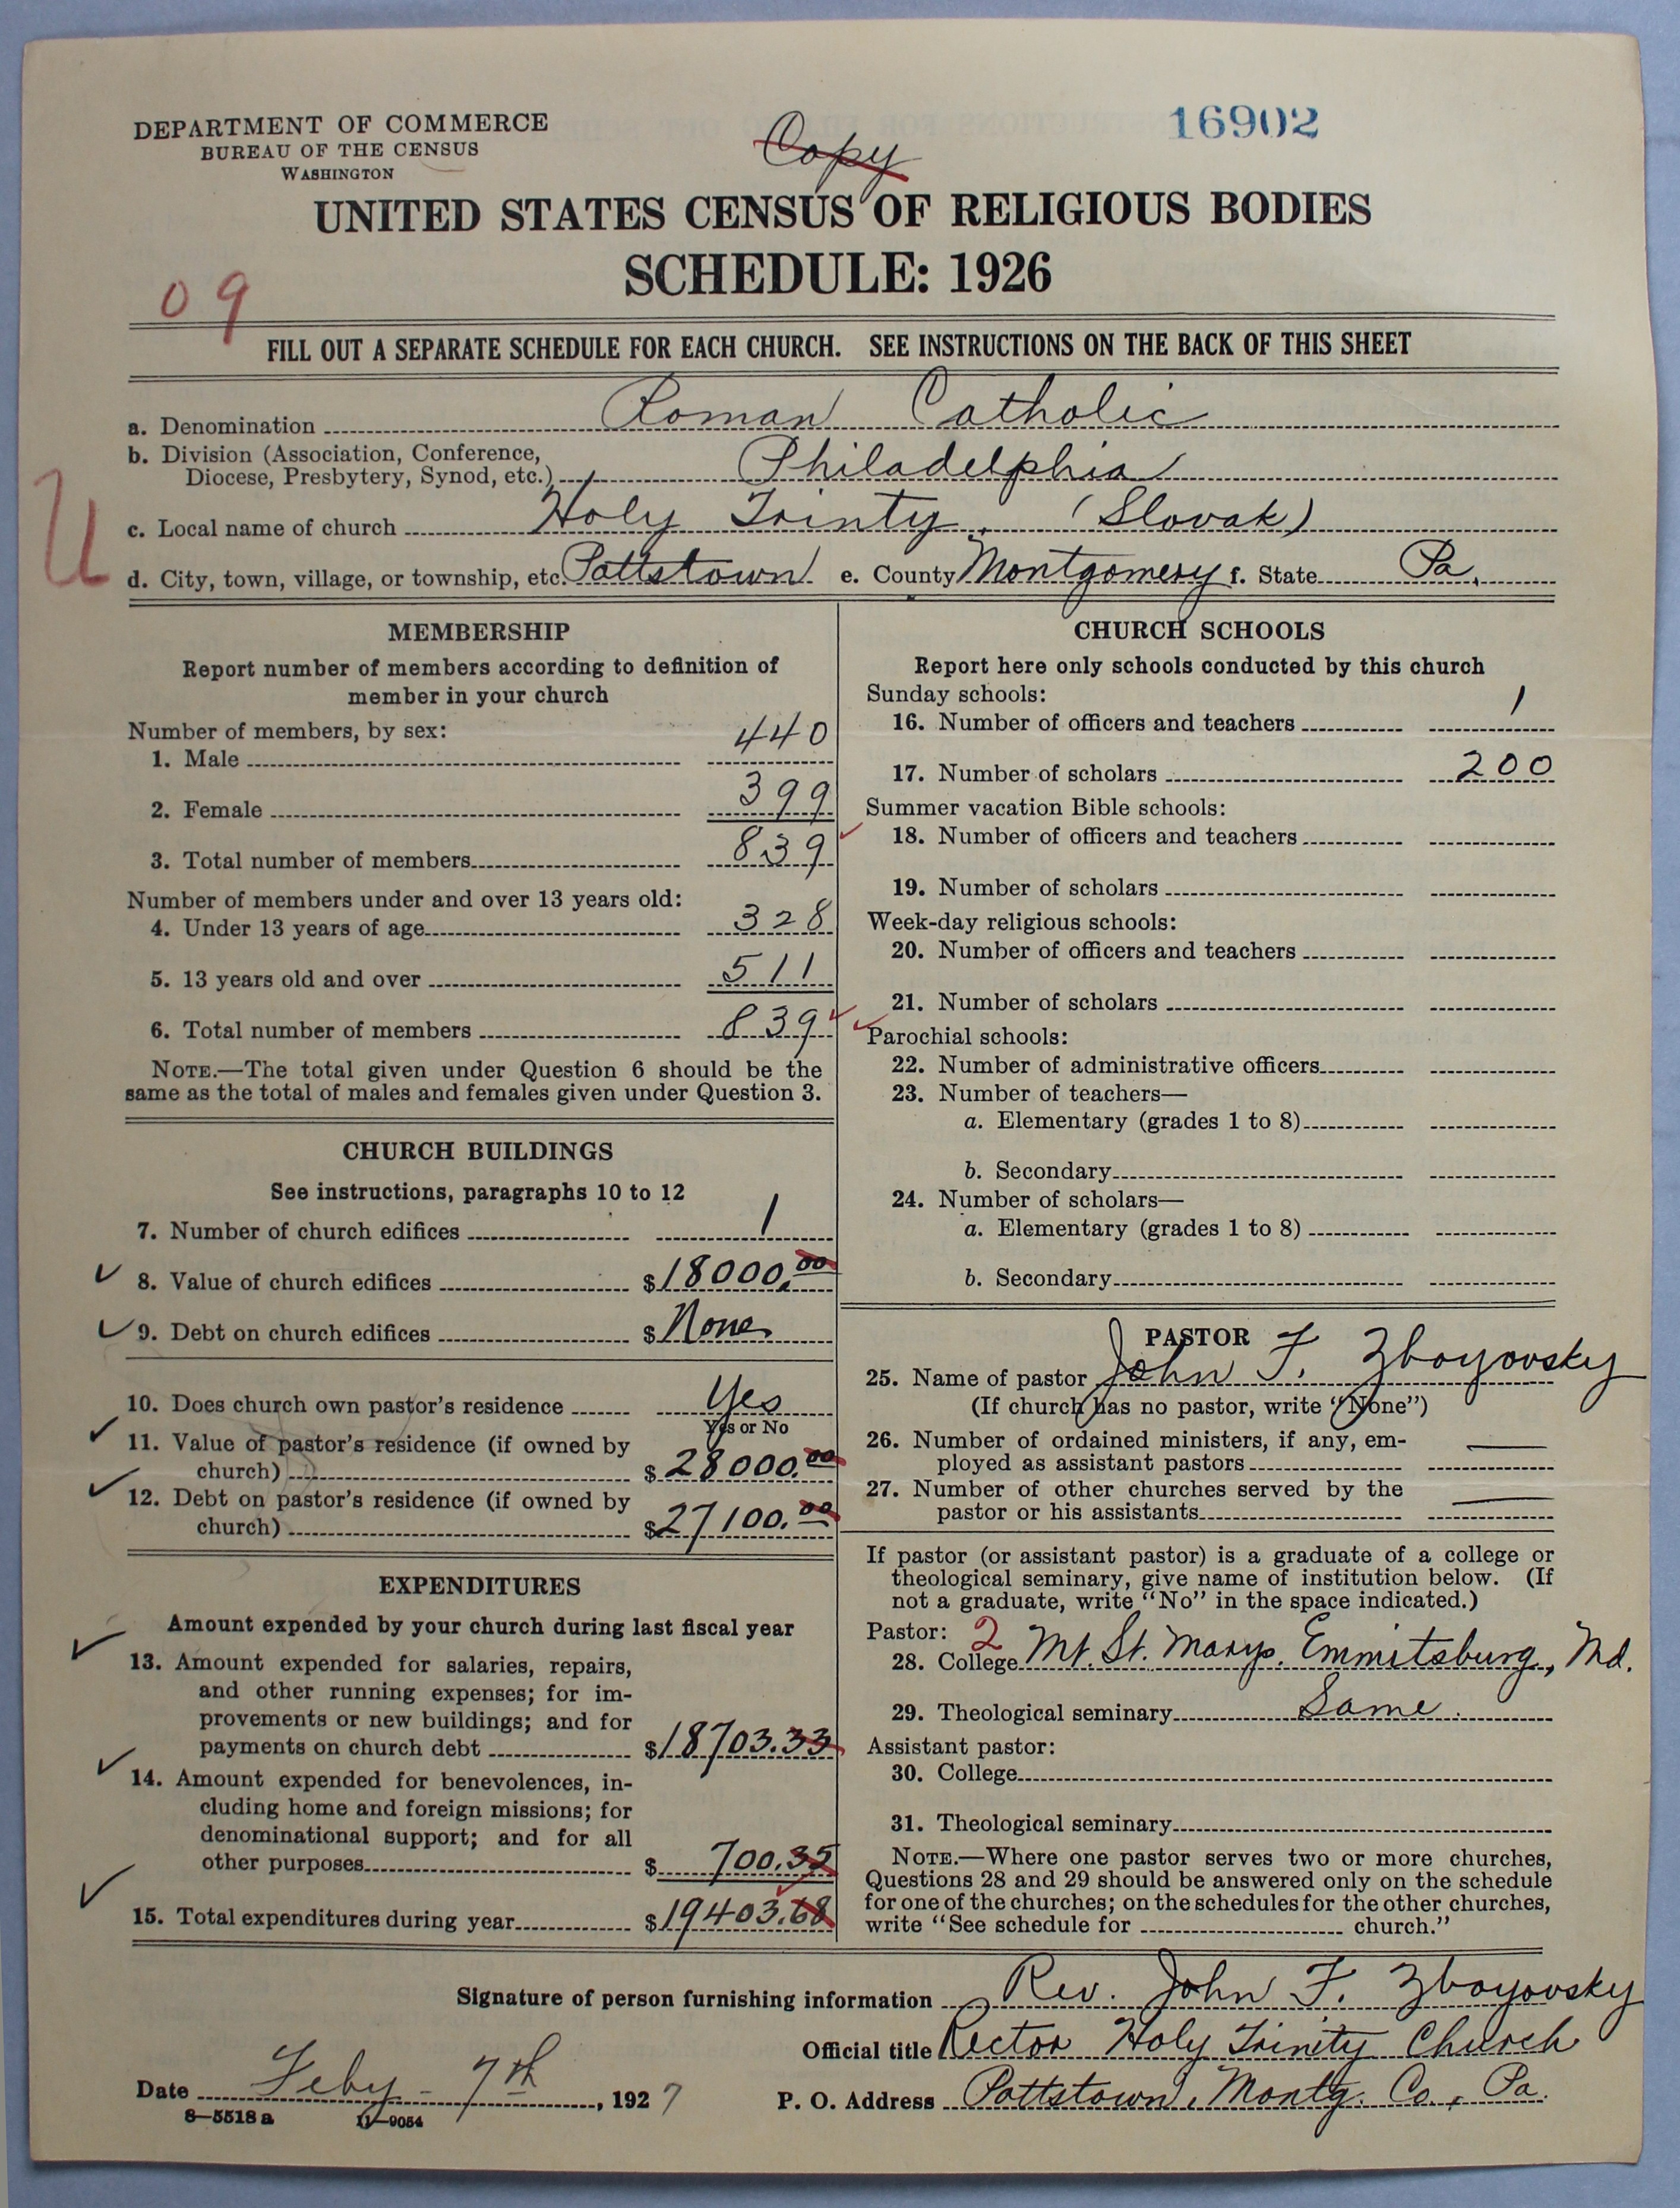 DEPARTMENT OF COMMERCE
BUREAU OF THE CENSUS
WASHINGTON
Copy
16902
UNITED STATES CENSUS OF RELIGIOUS BODIES
SCHEDULE: 1926
09
FILL OUT A SEPARATE SCHEDULE FOR EACH CHURCH. SEE INSTRUCTIONS ON THE BACK OF THIS SHEET
a. Denomination Roman Catholic
b. Division (Association, Conference,
Diocese, Presbytery, Synod, etc.) Philadelphia
c. Local name of church Holy Trinty. (Slovak)
U
d. City, town, village, or township, etc. Pottstown e. County Montgomery f. State Pa.
MEMBERSHIP
Report number of members according to definition of
member in your church
Number of members, by sex:
1. Male 440
2. Female 399
3. Total number of members 839
Number of members under and over 13 years old:
4. Under 13 years of age 328
5. 13 years old and over 511
6. Total number of members 839
NOTE.—The total given under Question 6 should be the
same as the total of males and females given under Question 3.
CHURCH BUILDINGS
See instructions, paragraphs 10 to 12
7. Number of church edifices 1
8. Value of church edifices $18000.00
9. Debt on church edifices $ None
10. Does church own pastor's residence Yes
Yes or No
11. Value of pastor's residence (if owned by
church) $ 28000.00
12. Debt on pastor's residence (if owned by
church) $27100.00
EXPENDITURES
Amount expended by your church during last fiscal year
13. Amount expended for salaries, repairs,
and other running expenses; for im-
provements or new buildings; and for
payments on church debt $18703.33
14. Amount expended for benevolences, in-
cluding home and foreign missions; for
denominational support; and for all
other purposes $ 700.35
15. Total expenditures during year $19403.68
CHURCH SCHOOLS
Report here only schools conducted by this church
Sunday schools:
16. Number of officers and teachers 1
17. Number of scholars 200
Summer vacation Bible schools:
18. Number of officers and teachers
19. Number of scholars
Week-day religious schools:
20. Number of officers and teachers
21. Number of scholars
Parochial schools:
22. Number of administrative officers
23. Number of teachers—
a. Elementary (grades 1 to 8)
b. Secondary
24. Number of scholars—
a. Elementary (grades 1 to 8)
b. Secondary
PASTOR
25. Name of pastor John F. Zboyovsky
(If church has no pastor, write "None")
26. Number of ordained ministers, if any, em-
ployed as assistant pastors —
27. Number of other churches served by the
pastor or his assistants —
If pastor (or assistant pastor) is a graduate of a college or
theological seminary, give name of institution below. (If
not a graduate, write "No" in the space indicated.)
Pastor: 2
28. College Mt. St. Marys. Emmitsburg, Md.
29. Theological seminary Same.
Assistant pastor:
30. College
31. Theological seminary
NOTE.—Where one pastor serves two or more churches,
Questions 28 and 29 should be answered only on the schedule
for one of the churches; on the schedules for the other churches,
write "See schedule for church."
Signature of person furnishing information Rev. John F. Zboyovsky
Official title Rector Holy Trinity Church
Date Feby - 7th, 1927
P. O. Address Pottstown, Montg. Co., Pa.
8—5518 a 11—9054